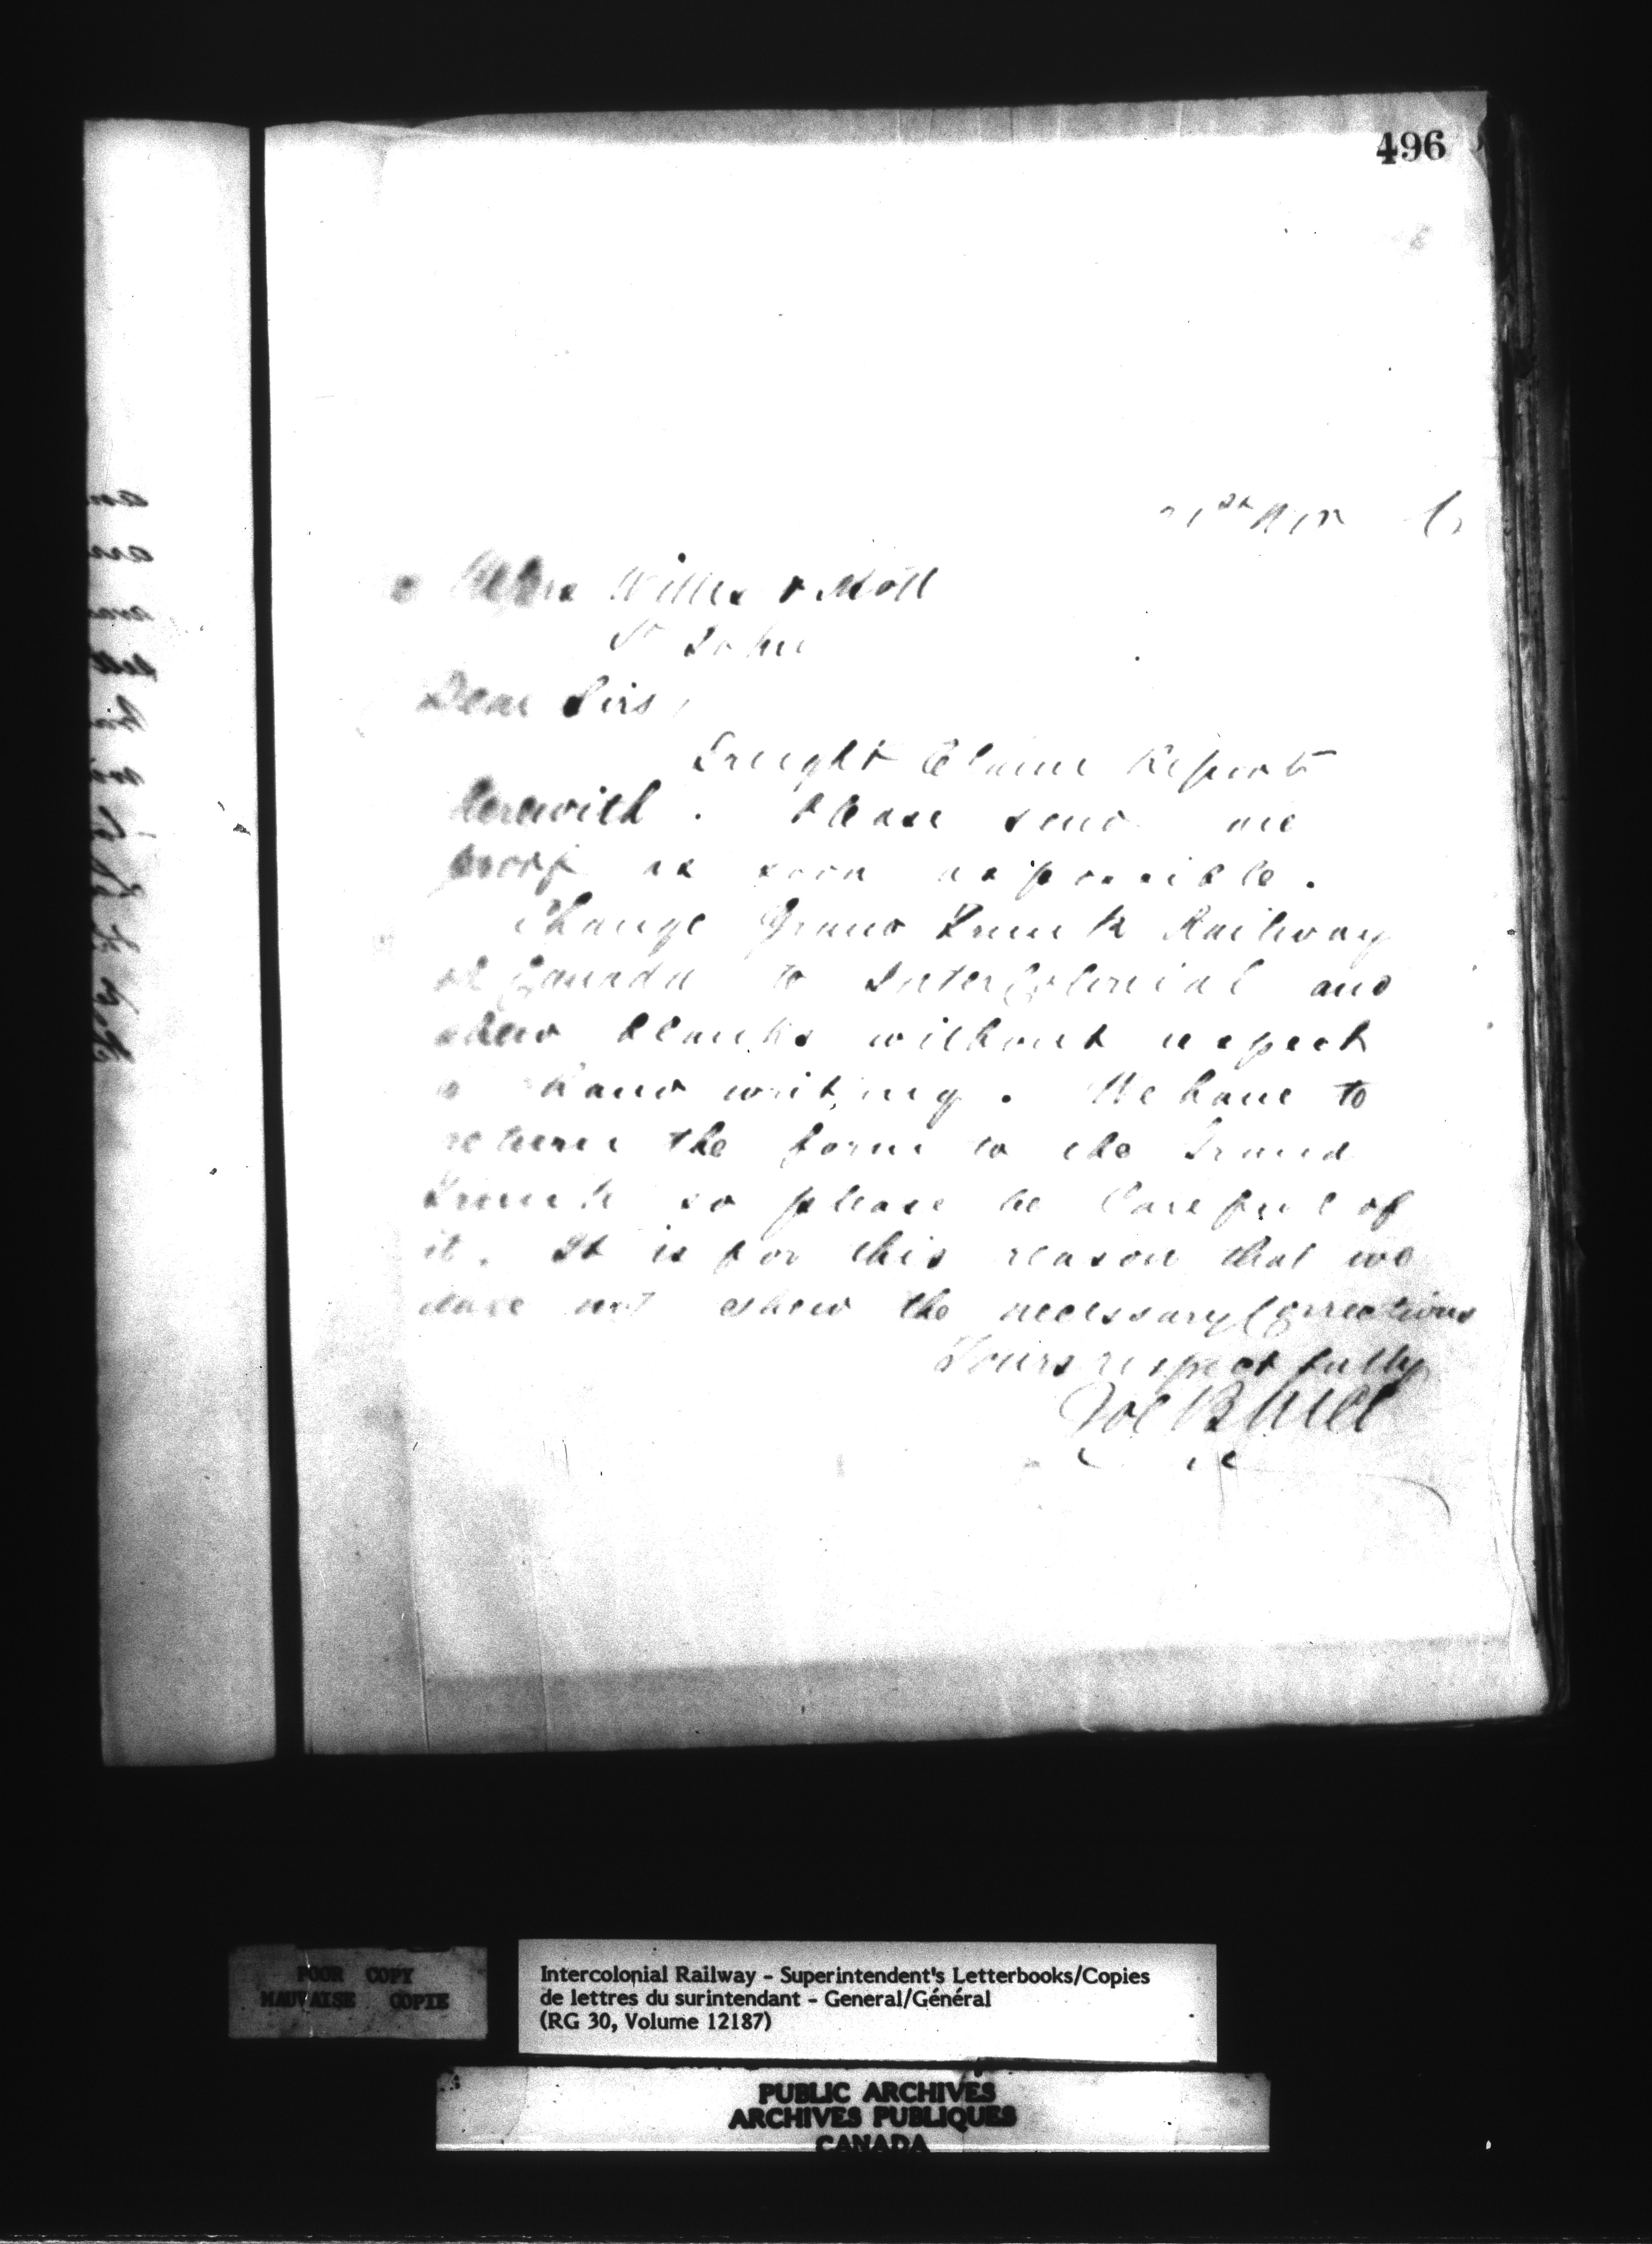 496
21st Nov
Messrs Willis & Mott
St John
Dear Sirs,
Freight Claim Report
herewith. Please send me
proof as soon as possible.
Change Grand Trunk Railway
of Canada to InterColonial and
shew blanks without respect
hand writing. We have to
return the form to the Grand
Trunk so please be Careful of
it. It is for this reason that we
have not shewn the necessary Corrections
Yours respectfully
POOR COPY
MAUVAISE COPIE
Intercolonial Railway - Superintendent's Letterbooks/Copies
de lettres du surintendant - General/Général
(RG 30, Volume 12187)
PUBLIC ARCHIVES
ARCHIVES PUBLIQUES
CANADA